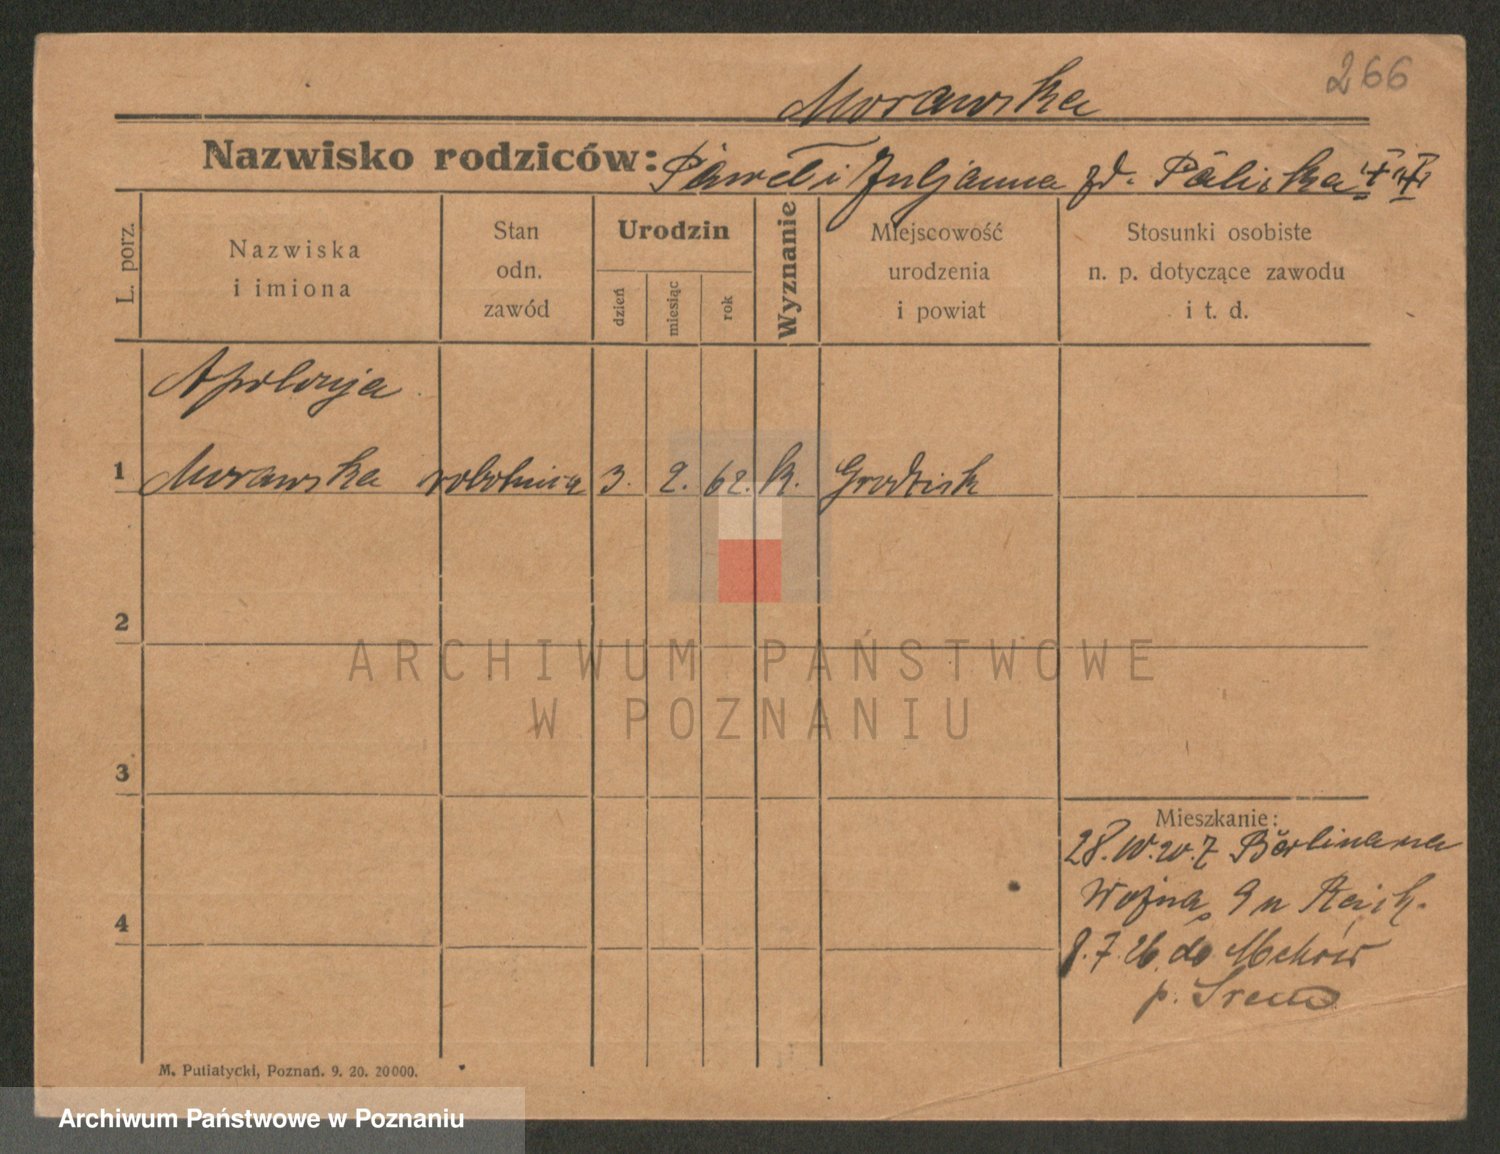 266
Morawska
Nazwisko rodziców: Paweł i Juljanna zd. Palicka
L. porz.
Nazwiska i imiona
Stan odn. zawód
Urodzin
dzień
miesiąc
rok
Wyznanie
Miejscowość urodzenia i powiat
Stosunki osobiste n. p. dotyczące zawodu i t. d.
Apolonja
1 Morawska robotnica 3. 2. 62. k. Grodzisk
2
3
4
Mieszkanie:
Berlina na
8.7.26. do
p. Śrem
M. Putiatycki, Poznań. 9. 20. 20000.
ARCHIWUM PAŃSTWOWE
W POZNANIU
Archiwum Państwowe w Poznaniu